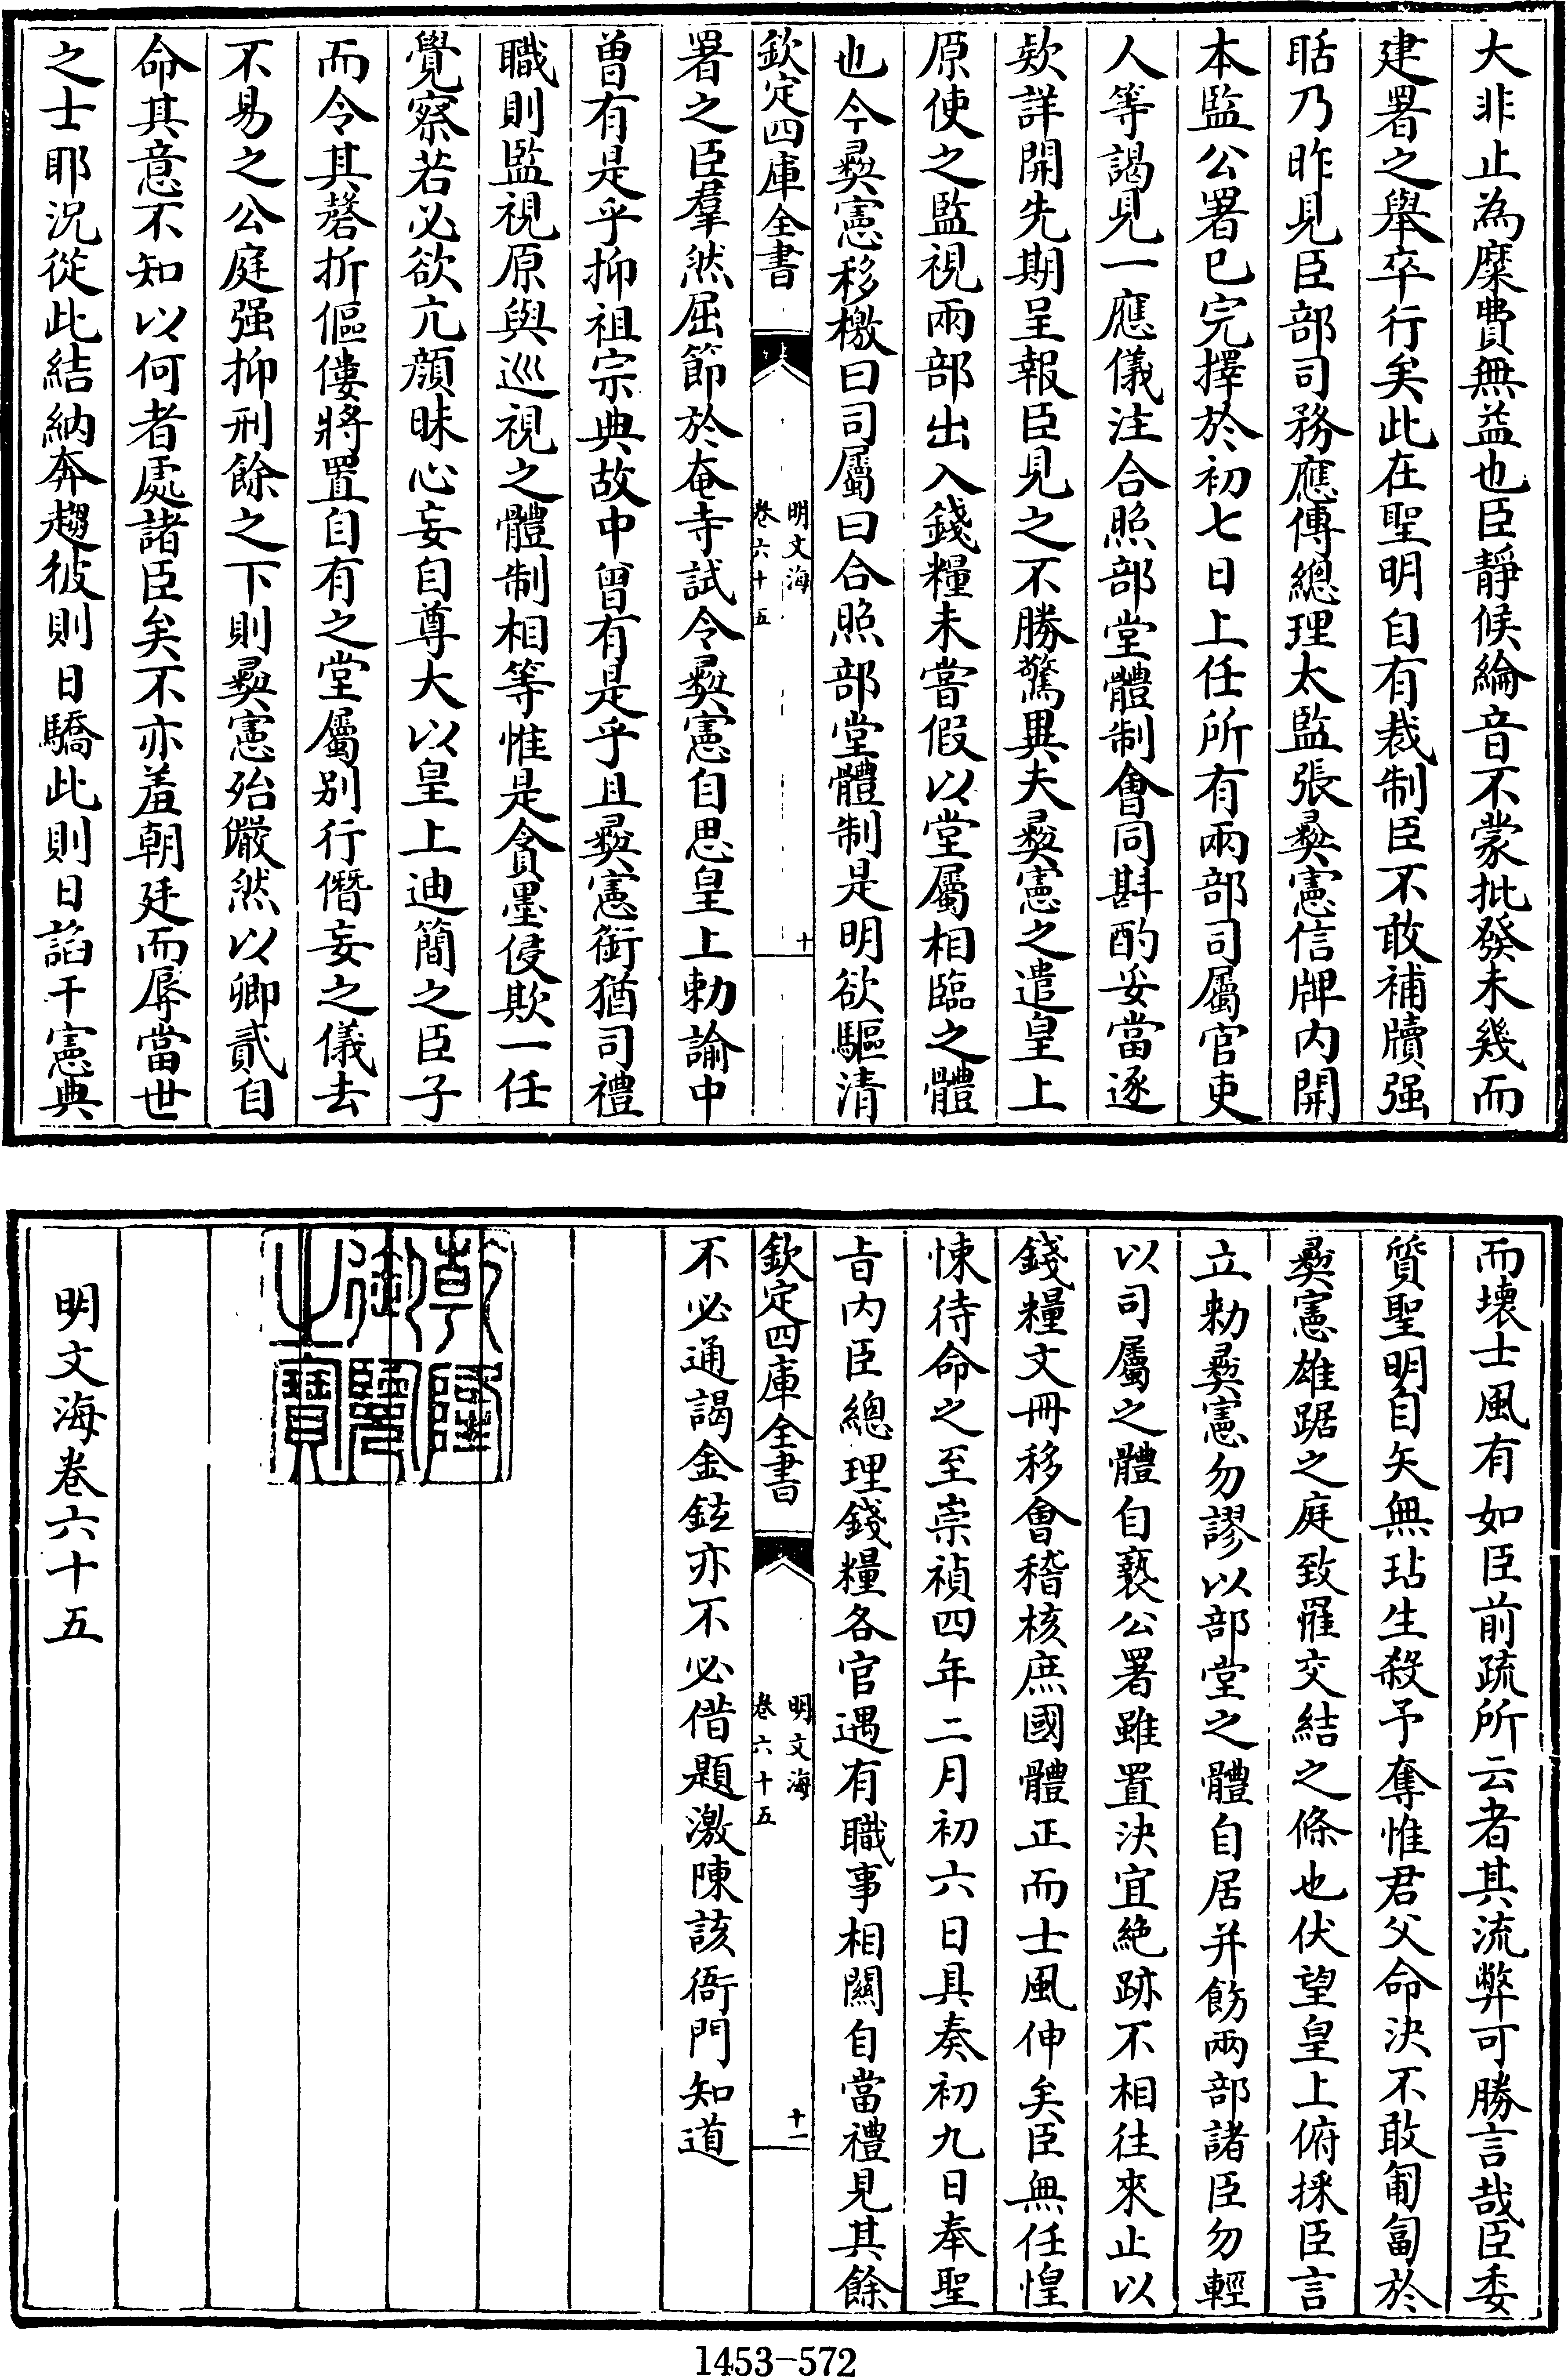 大非止為糜費無益也臣靜候綸音不蒙批發未幾而
建署之舉卒行矣此在聖明自有裁制臣不敢補牘强
聒乃昨見臣部司務應傳總理太監張彝憲信牌内開
本監公署已完擇於初七日上任所有兩部司屬官吏
人等謁見一應儀注合照部堂體制會同斟酌妥當逐
欵詳開先期呈報臣見之不勝驚異夫彝憲之遣皇上
原使之監視兩部出入錢糧未嘗假以堂屬相臨之體
也今彝憲移檄曰司屬曰合照部堂體制是明欲驅清
欽定四庫全書
明文海
卷六十五
十
署之臣羣然屈節於奄寺試令彝憲自思皇上勅諭中
曾有是乎抑祖宗典故中曾有是乎且彝憲銜猶司禮
職則監視原與巡視之體制相等惟是貪墨侵欺一任
覺察若必欲亢顏昧心妄自尊大以皇上迪簡之臣子
而令其磬折傴僂將置自有之堂屬别行僭妄之儀去
不易之公庭强抑刑餘之下則彝憲殆儼然以卿貳自
命其意不知以何者處諸臣矣不亦羞朝廷而辱當世
之士耶況從此結納奔趨彼則日驕此則日諂干憲典
而壊士風有如臣前疏所云者其流弊可勝言哉臣委
質聖明自矢無玷生殺予奪惟君父命決不敢匍匐於
彝憲雄踞之庭致罹交結之條也伏望皇上俯採臣言
立勅彝憲勿謬以部堂之體自居并飭兩部諸臣勿輕
以司屬之體自褻公署雖置決宜絶跡不相往來止以
錢糧文冊移會稽核庶國體正而士風伸矣臣無任惶
悚待命之至崇禎四年二月初六日具奏初九日奉聖
旨内臣總理錢糧各官遇有職事相關自當禮見其餘
欽定四庫全書
明文海
卷六十五
十一
不必通謁金鉉亦不必借題激陳該衙門知道
乾隆
御覽
之寶
明文海卷六十五
1453-572